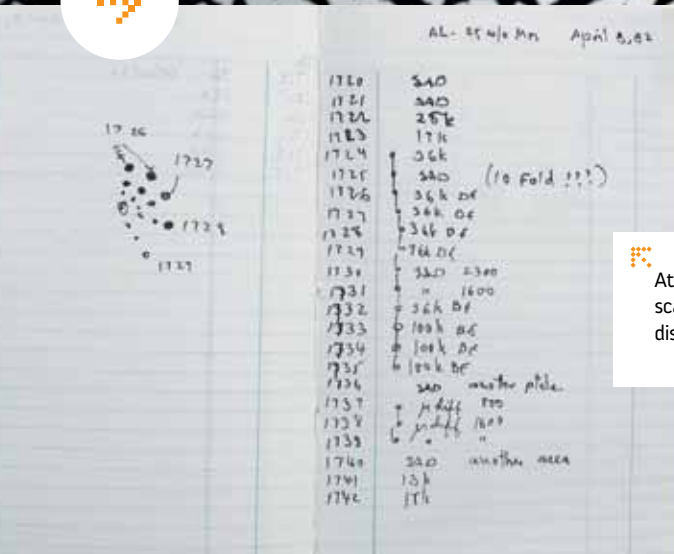 1726
1727
1728
1729
AL-25 w/o Mn April 8, 82
1720 SAD
1721 SAD
1722 25k
1723 17k
1724 36k
1725 SAD (10 Fold !!!)
1726 36k DF
1727 36k DF
1728 36k DF
1729 36k DF
1730 SAD 2300
1731 " 1600
1732 36k DF
1733 100k DF
1734 100k DF
1735 100k DF
1736 SAD another
1737 μ diff
1738 μ diff 1600
1739 " "
1740 SAD another area
1741 15k
1742 17k
At
sca
dis